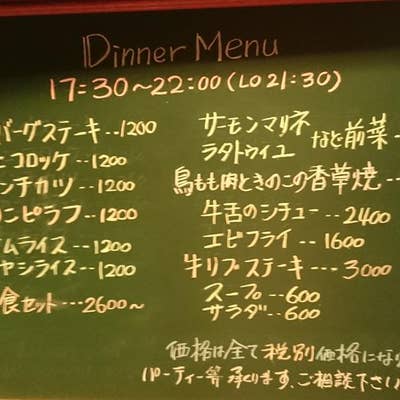 Dinner Menu
17:30~22:00(LO 21:30)
バーグステーキ--1200
ニコロッケ--1200
ンチカツ--1200
ニピラフ--1200
ムライス--1200
ヤシライス--1200
食セット---2600~
サーモンマリネ
ラタトゥイユ など前菜--
鳥もも肉ときのこの香草焼--
牛舌のシチュー--2400
エビフライ--1600
牛リブステーキ---3000
スープ--600
サラダ--600
価格は全て税別価格にな
パーティー等承ります。ご相談下さい